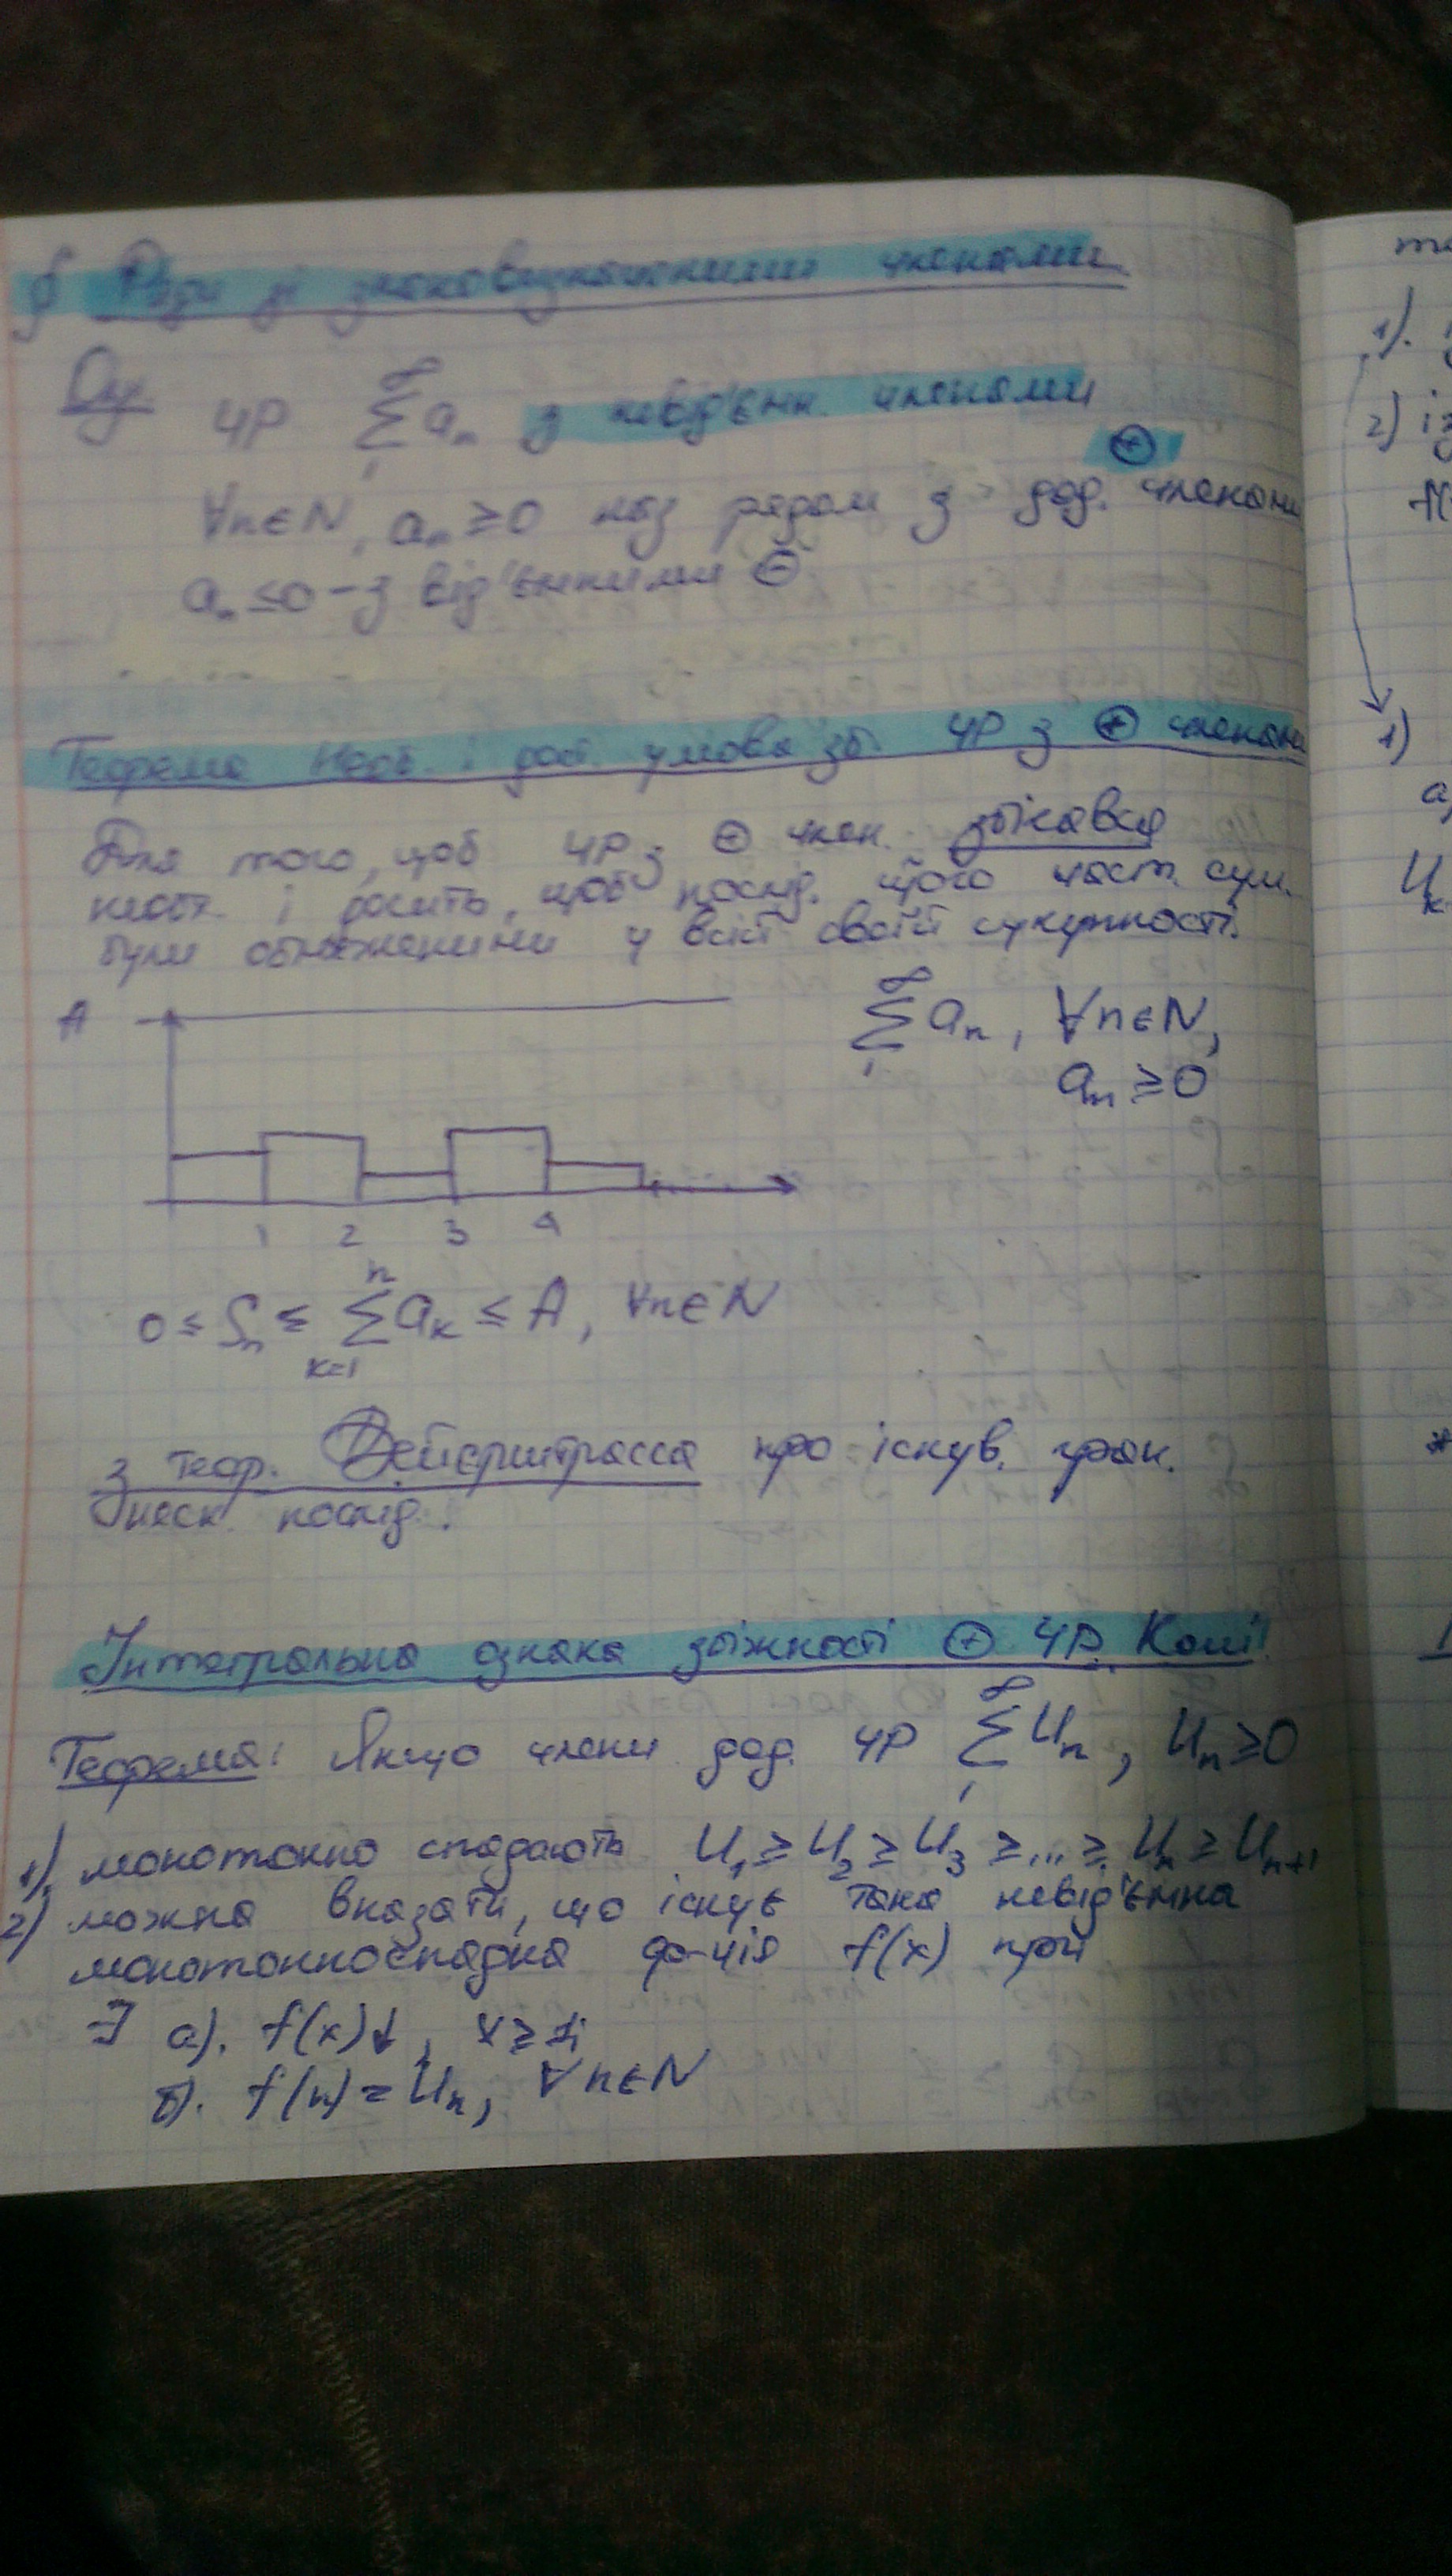 § Ряди зі знаковизначеними членами
Оз. ЧР ∞ ∑ 1 aₙ з невід'ємн. членами
∀n∈N, aₙ ≥ 0 наз рядом з дод. ⊕ членами
aₙ ≤ 0 - з від'ємними ⊖
Теорема Необ. і дост. умова зб. ЧР з ⊕ членами
Для того, щоб ЧР з ⊕ член. збігався
необх. і досить, щоб послід. його част. сум.
були обмеженими у всій своїй сукупності.
A
∞ ∑ 1 aₙ, ∀n∈N,
aₙ ≥ 0
1 2 3 4
0 ≤ Sₙ ≤ n ∑ k=1 aₖ ≤ A, ∀n∈N
з теор. Вейєрштрасса про існув. гран.
неск. послід.
Інтегральна ознака збіжності ⊕ ЧР. Коші
Теорема: Якщо члени дод. ЧР ∞ ∑ 1 Uₙ, Uₙ ≥ 0
1) монотонно спадають U₁ ≥ U₂ ≥ U₃ ≥ ... ≥ Uₙ ≥ Uₙ₊₁
2) можна вказати, що існує така невід'ємна
монотонноспадна ф-ція f(x) при
∃ а). f(x)↓, x ≥ 1;
б). f(n) = Uₙ, ∀n∈N
1).
2) із
1)
а)
Uₖ
*